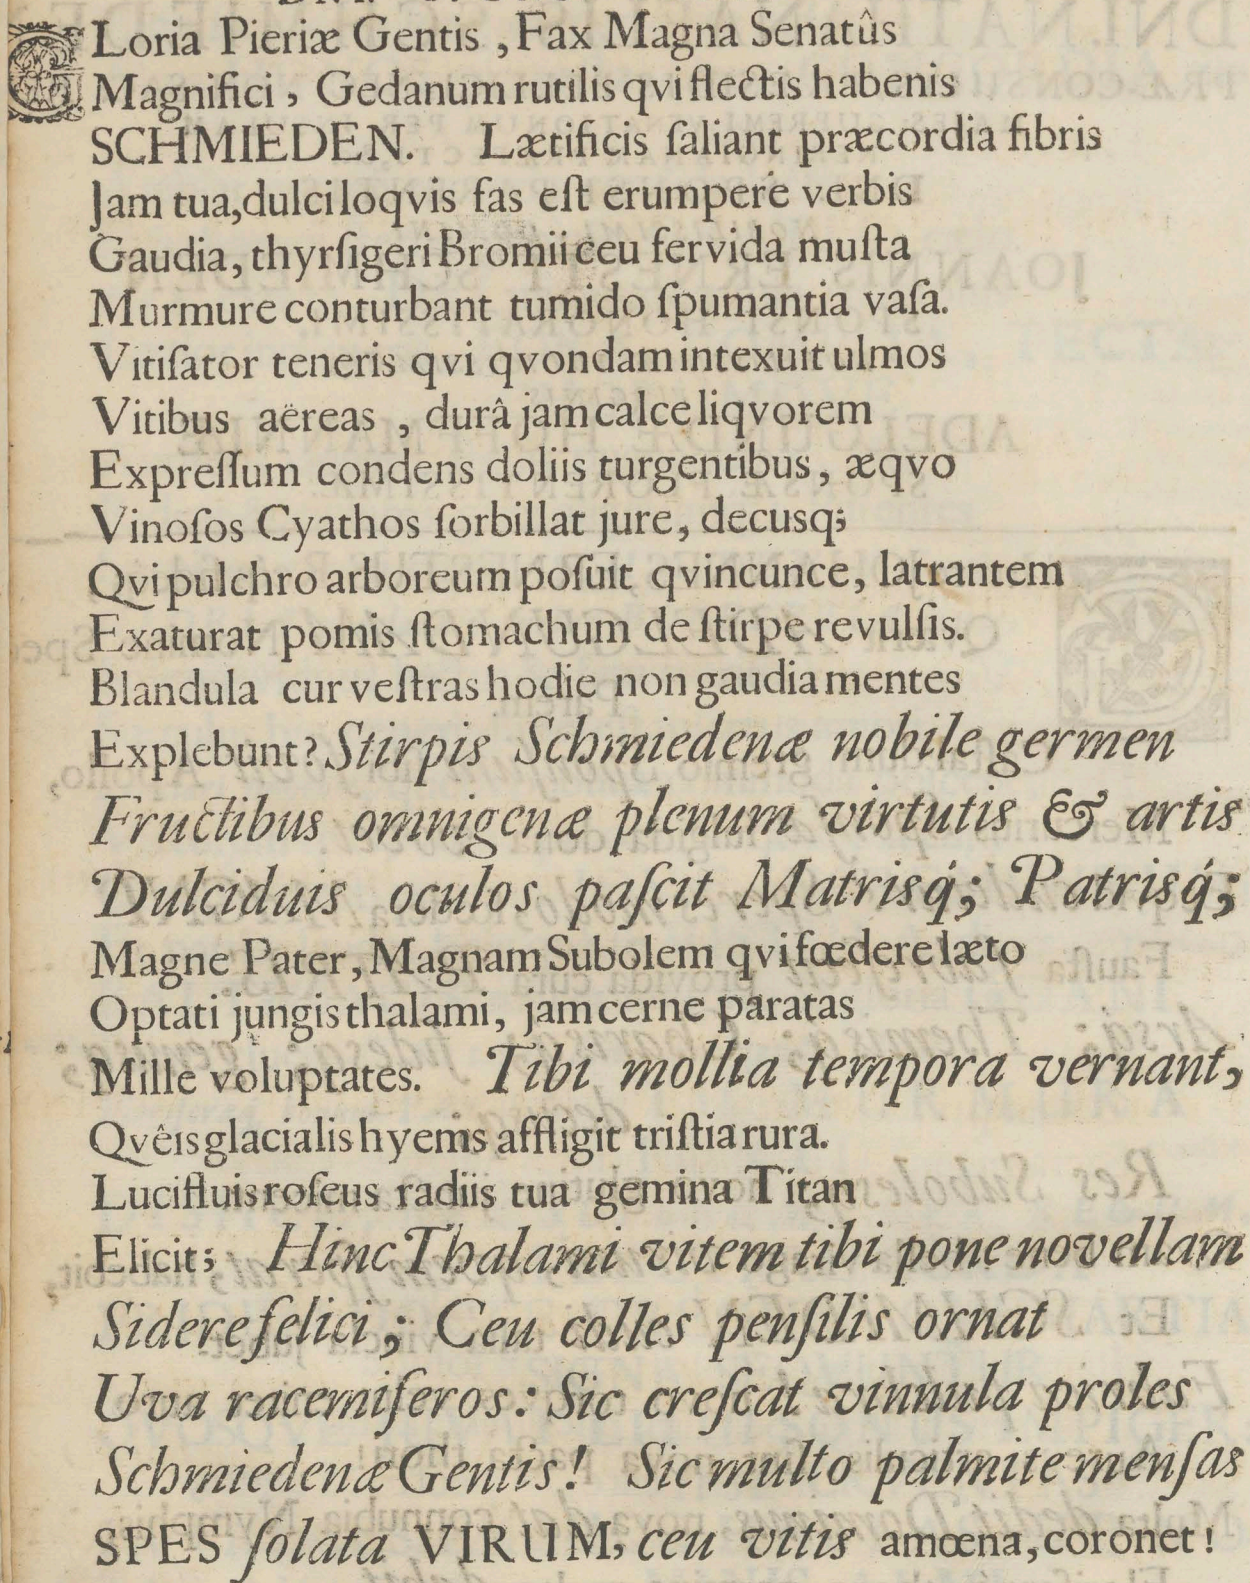 GLoria Pieriæ Gentis , Fax Magna Senatûs
Magnifici , Gedanum rutilis qvi flectis habenis
SCHMIEDEN. Lætificis ſaliant præcordia fibris
Jam tua, dulciloqvis fas eſt erumpere verbis
Gaudia, thyrſigeri Bromii ceu fervida muſta
Murmure conturbant tumido ſpumantia vaſa.
Vitiſator teneris qvi qvondam intexuit ulmos
Vitibus aëreas , durâ jam calce liqvorem
Expreſſum condens doliis turgentibus, æqvo
Vinoſos Cyathos ſorbillat jure, decusq;
Qvi pulchro arboreum poſuit qvincunce, latrantem
Exaturat pomis ſtomachum de ſtirpe revulſis.
Blandula cur veſtras hodie non gaudia mentes
Explebunt? Stirpis Schmiedenæ nobile germen
Fructibus omnigenæ plenum virtutis & artis
Dulciduis oculos paſcit Matrisq́; Patrisq́;
Magne Pater, Magnam Subolem qvi fœdere læto
Optati jungis thalami, jam cerne paratas
Mille voluptates. Tibi mollia tempora vernant,
Qvêis glacialis hyems affligit triſtia rura.
Lucifluis roſeus radiis tua gemina Titan
Elicit; Hinc Thalami vitem tibi pone novellam
Sidere felici; Ceu colles penſilis ornat
Uva racemiferos: Sic creſcat vinnula proles
Schmiedenæ Gentis! Sic multo palmite menſas
SPES ſolata VIRUM, ceu vitis amœna, coronet!